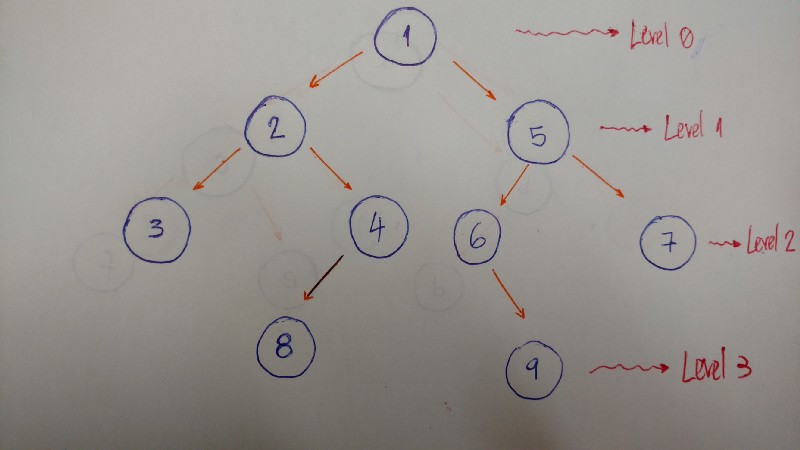 1 Level 0
2 5 Level 1
3 4 6 7 Level 2
8 9 Level 3